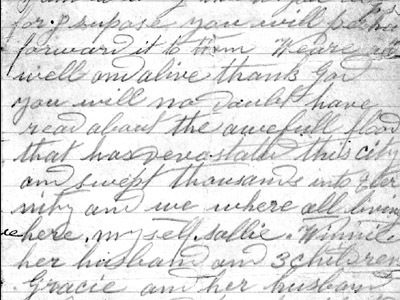 for I supose you will
forward it to him We are all
well and alive thank God
you will no doubt have
read about the awefull flood
that has devastated this city
and swept thousands into Eter
nity and we where all living
here, my self, sallie. Winnie.
her husband and 3 children
Gracie and her husband